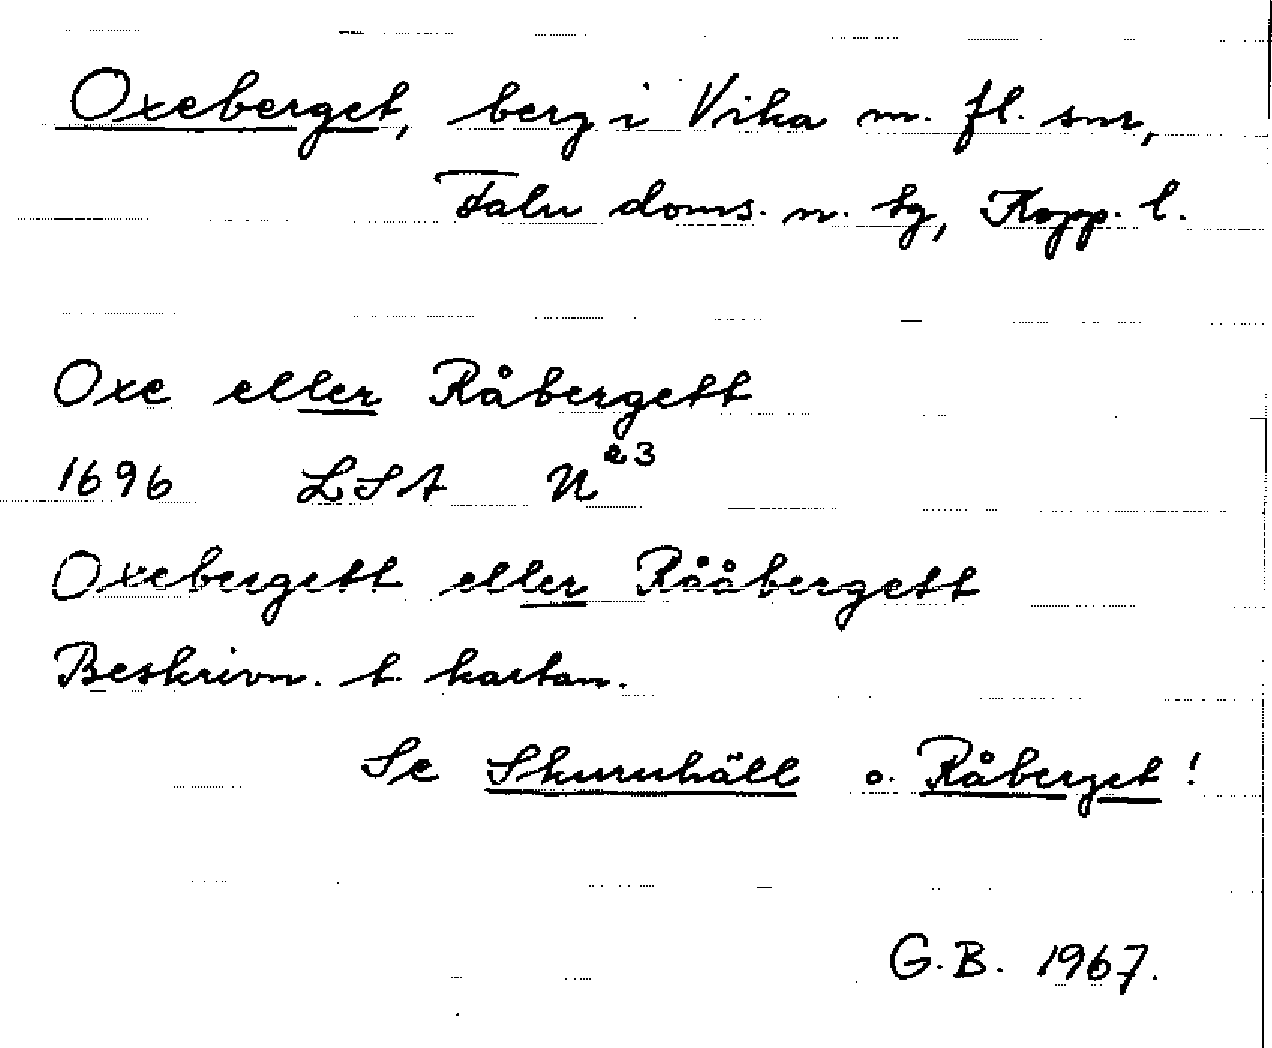 Oxeberget, berg i Vika m. fl. snr,
Falu doms. n. tg, Kopp. l.
Oxe eller Råbergett
1696 LSA U 23
Oxebergett eller Rååbergett
Beskrivn. t. kartan.
Se Skuruhäll o. Råberget!
G.B. 1967.